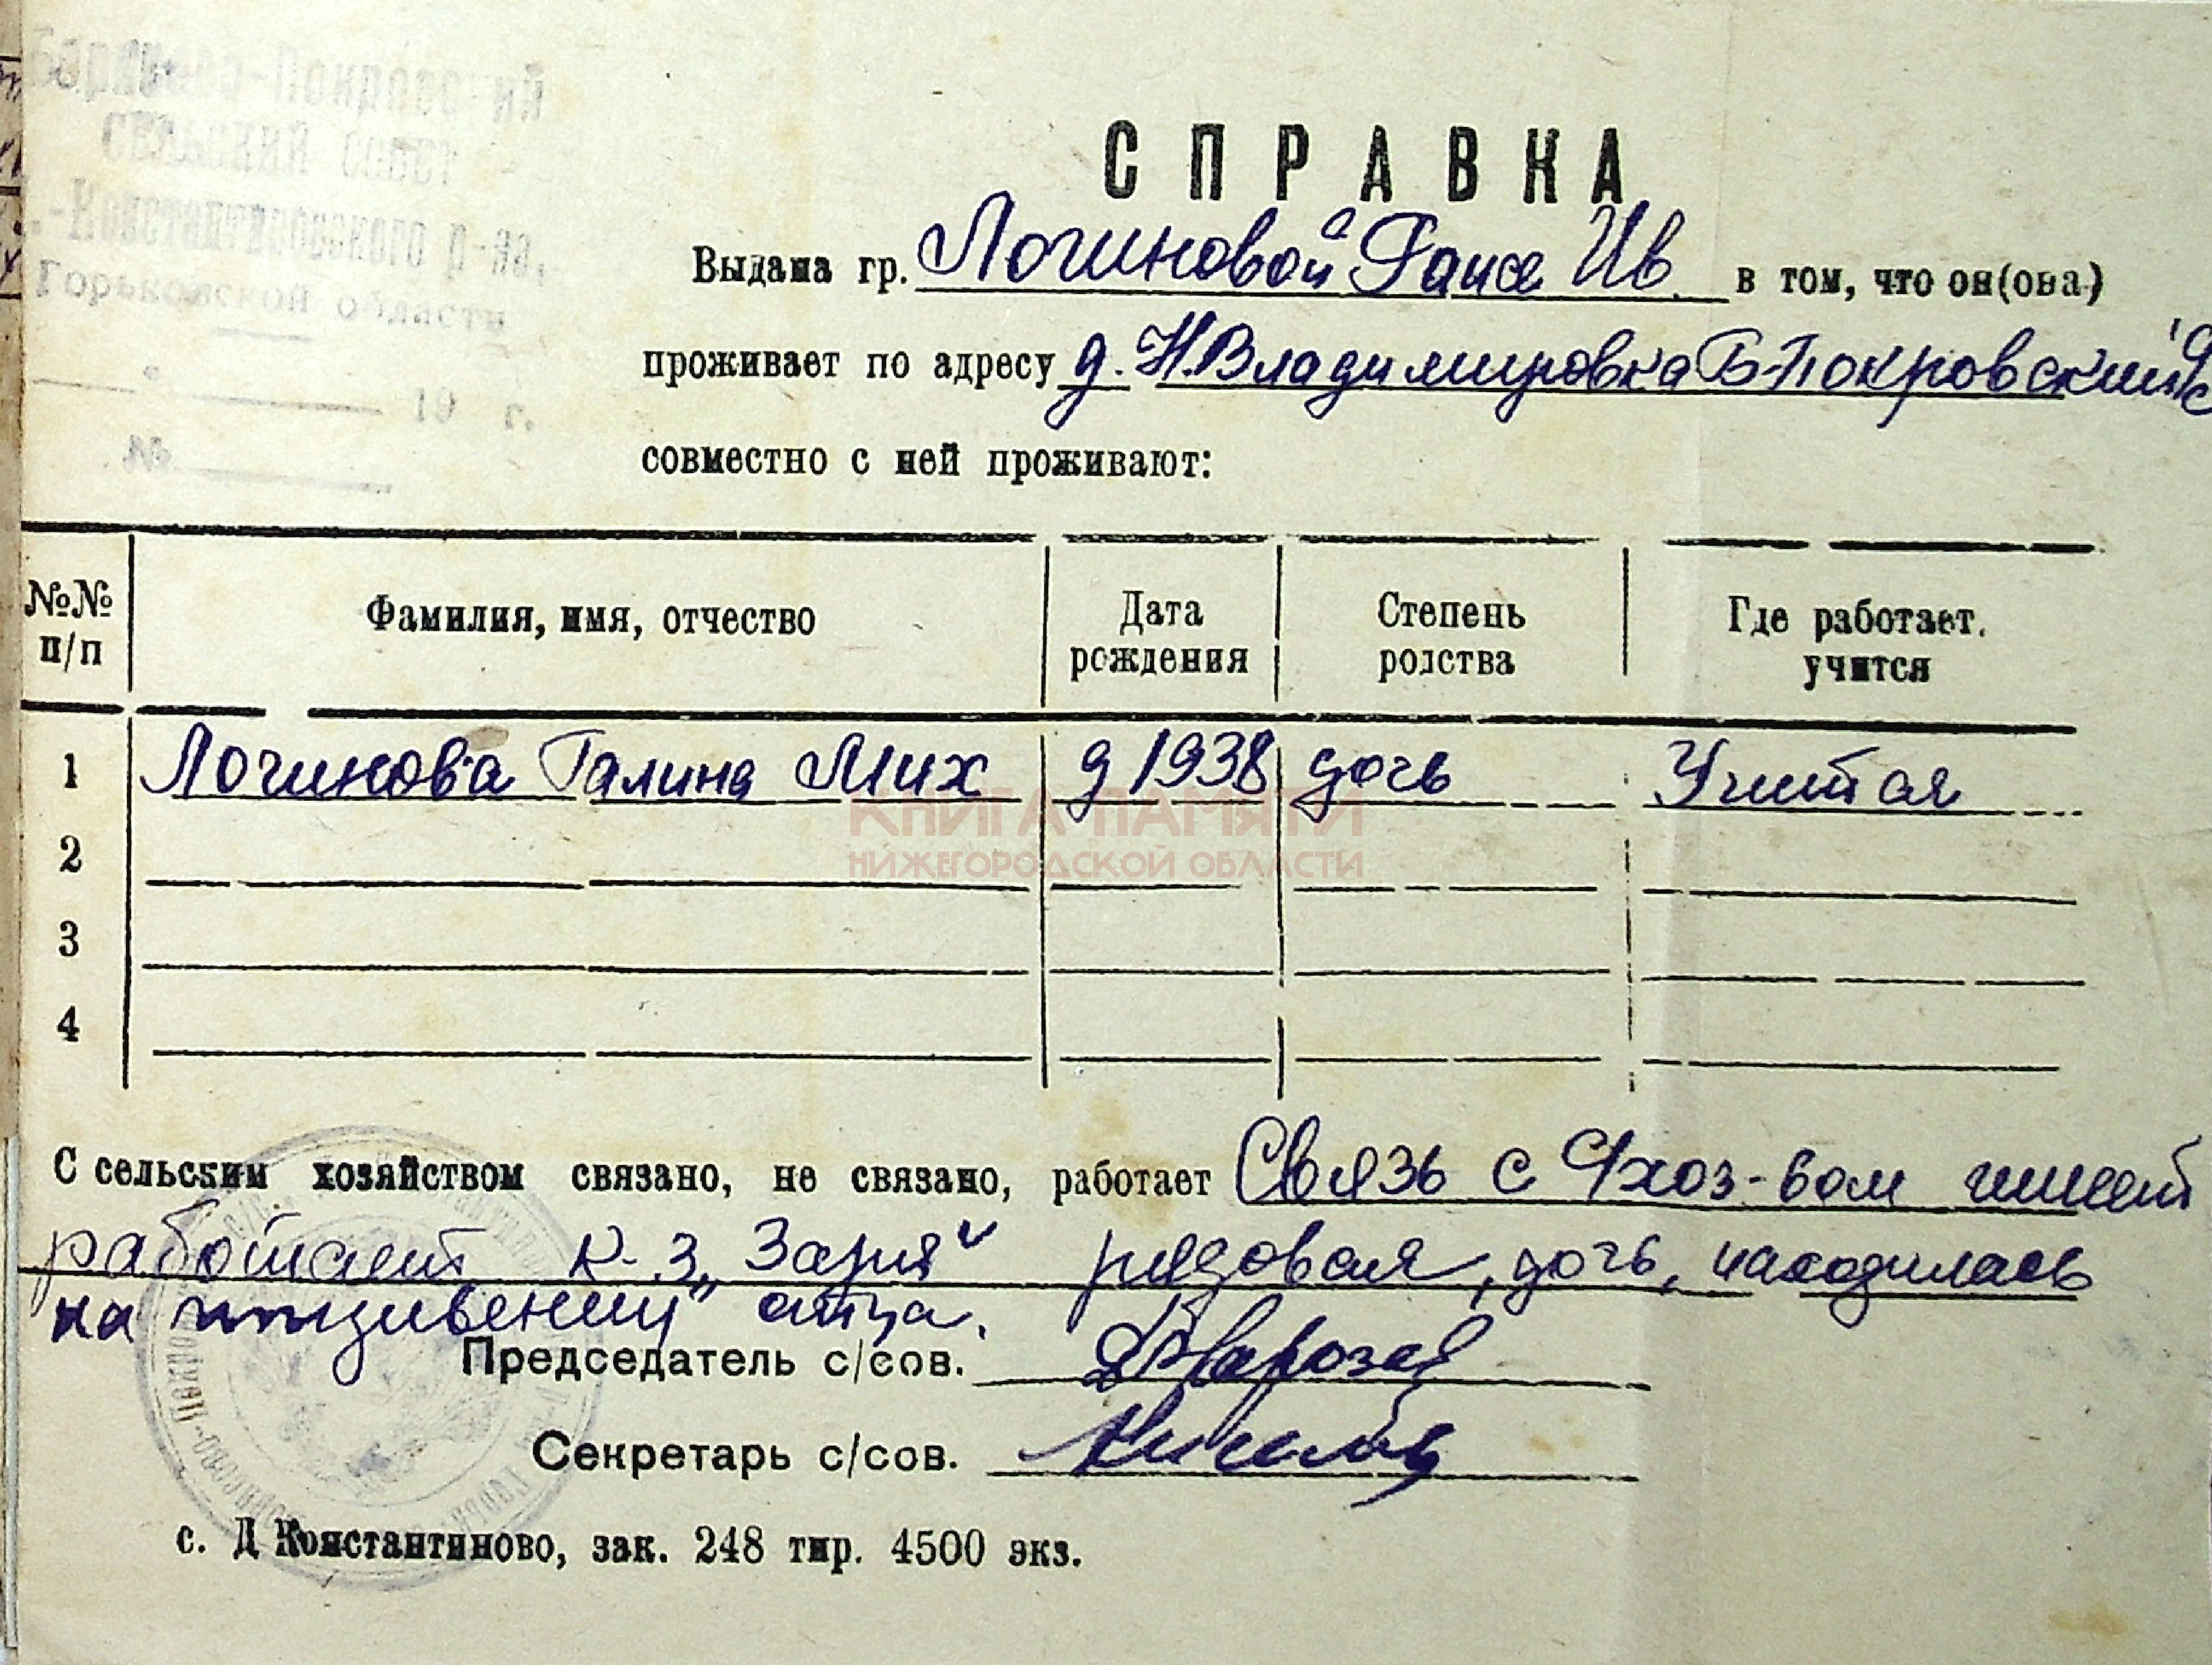 Борисово-Покровский
СЕЛЬСКИЙ СОВЕТ
Д.-Константиновского р-на,
Горьковской области
19 г.
№
СПРАВКА
Выдана гр. Логиновой Раисе Ив в том, что он(она)
проживает по адресу д. Н.Владимировка Б-Покровский с/с
совместно с ней проживают:
№№ п/п Фамилия, имя, отчество Дата рождения Степень родства Где работает, учится
1 Логинова Галина Мих д 1938 дочь Учится
2
3
4
С сельским хозяйством связано, не связано, работает Связь с с/хоз-вом имеет
работает к-з „Заря" рядовая, дочь, находилась
на иждивении отца.
Председатель с/сов.
Секретарь с/сов.
с. Д Константиново, зак. 248 тир. 4500 экз.
КНИГА ПАМЯТИ
НИЖЕГОРОДСКОЙ ОБЛАСТИ